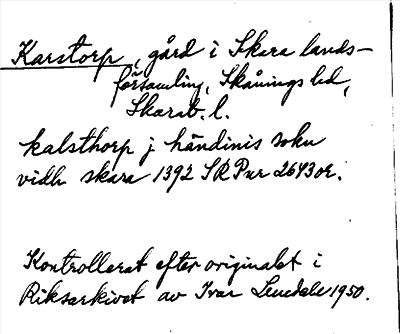 Karstorp, gård i Skara lands-
församling, Skånings hd,
Skarab. l.
kalsthorp j händinis sokn
vidh skara 1392 SRP nr 2643 or.
Kontrollerat efter originalet i
Riksarkivet av Ivar Lundahl 1950.